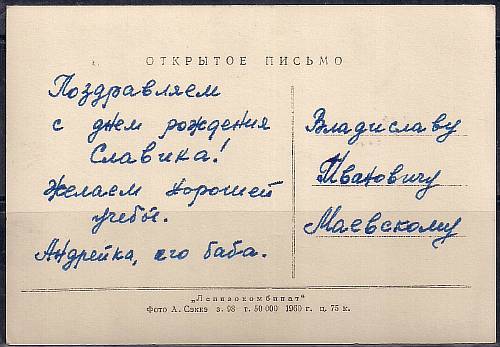 ОТКРЫТОЕ ПИСЬМО
Поздравляем
с днем рождения
Славика!
Желаем хорошей
учебы.
Андрейка, его баба.
Владиславу
Ивановичу
Маевскому
„Ленизокомбинат"
Фото А. Сэккэ з. 98 т. 50 000 1960 г. ц. 75 к.